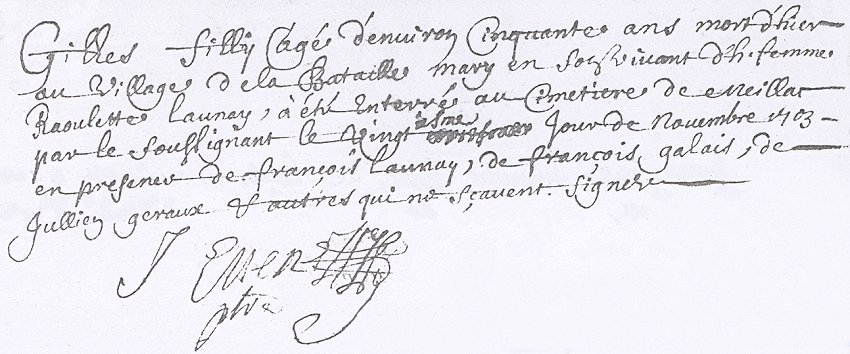 Gilles filly âgé d'environ Cinquante ans mort d'hier
au Village de la Bataille mary en son vivant d'h. femme
Raoullette Launay, a été Interré au Cimetiere de Meillac
par le soussignant le Vingt iesme Jour de Novembre 1703
en presence de françois Launay, de françois galais, de
Jullien geraux & autres qui ne sçavent signer
J Even
ptre